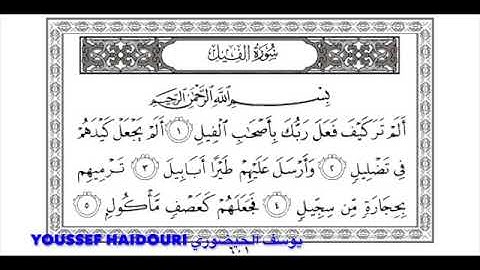 سُورَةُ الفِيلِ
بِسْمِ اللَّهِ الرَّحْمَٰنِ الرَّحِيمِ
أَلَمْ تَرَ كَيْفَ فَعَلَ رَبُّكَ بِأَصْحَابِ الْفِيلِ ١ أَلَمْ يَجْعَلْ كَيْدَهُمْ
فِي تَضْلِيلٍ ٢ وَأَرْسَلَ عَلَيْهِمْ طَيْرًا أَبَابِيلَ ٣ تَرْمِيهِم
بِحِجَارَةٍ مِّن سِجِّيلٍ ٤ فَجَعَلَهُمْ كَعَصْفٍ مَّأْكُولٍ ٥
YOUSSEF HAIDOURI يوسف الحيضوري
٦٠١